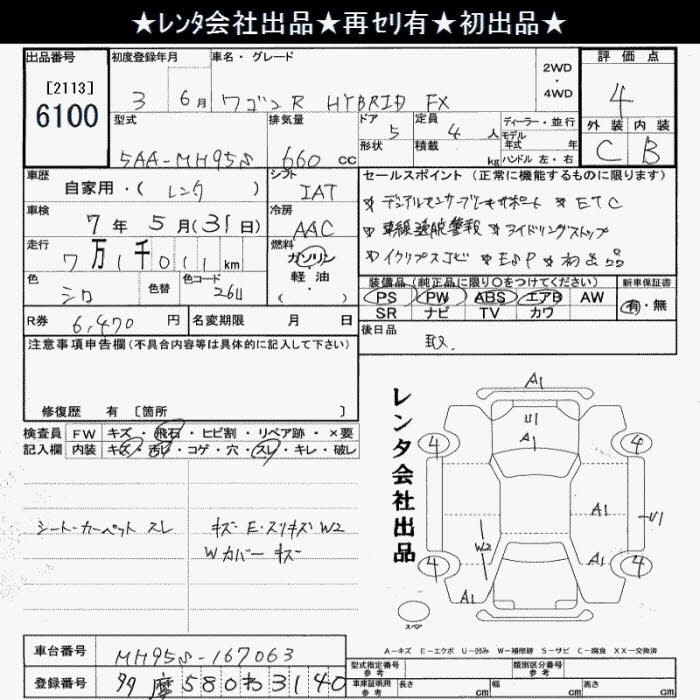 ★レンタ会社出品★再セリ有★初出品★
出品番号 初度登録年月 車名・グレード 2WD・4WD 評価点
[2113]
6100
3 6月 ワゴンR HYBRID FX 4
型式 排気量 ドア 5 定員 4人 ディーラー・並行 外装 内装
5AA-MH95S 660cc 形状 積載 kg モデル年式 年 ハンドル 左・右 C B
車歴 自家用・(レンタ) シフト IAT セールスポイント(正常に機能するものに限ります)
☆デュアルセンサーブレーキサポート ☆ETC
車検 7年5月(31日) 冷房 AAC ☆車線逸脱警報 ☆アイドリングストップ
走行 7万1千011km 燃料 ガソリン・軽油・( ) ☆イクリプスナビ ☆ESP ☆初出品
色 シロ 色替 色コード 26U 装備品(純正品に限り○をつけてください) 新車保証書
PS PW ABS エアB AW 有・無
SR ナビ TV カワ
R券 6,470円 名変期限 月 日 後日品
取.
注意事項申告欄(不具合内容等は具体的に記入して下さい)
修復歴 有 [箇所 ]
検査員 FW キズ・飛石・ヒビ割・リペア跡・×要
記入欄 内装 キズ・汚レ・コゲ・穴・スレ・キレ・破レ
シート・カーペット スレ キズ E・スリキズ W2
Wカバー キズ
レンタ会社出品
A1
U1
A1
4 4
A1 U1
W2
4 A1 4
A1
スペア
A-キズ E-エクボ U-凹み W-補修跡 S-サビ C-腐食 XX-交換済
車台番号 MH95S-167063
登録番号 多摩580わ3140
型式指定番号 類別区分番号
参考 参考
車庫証明用 長さ 幅 高さ
参考 cm cm cm